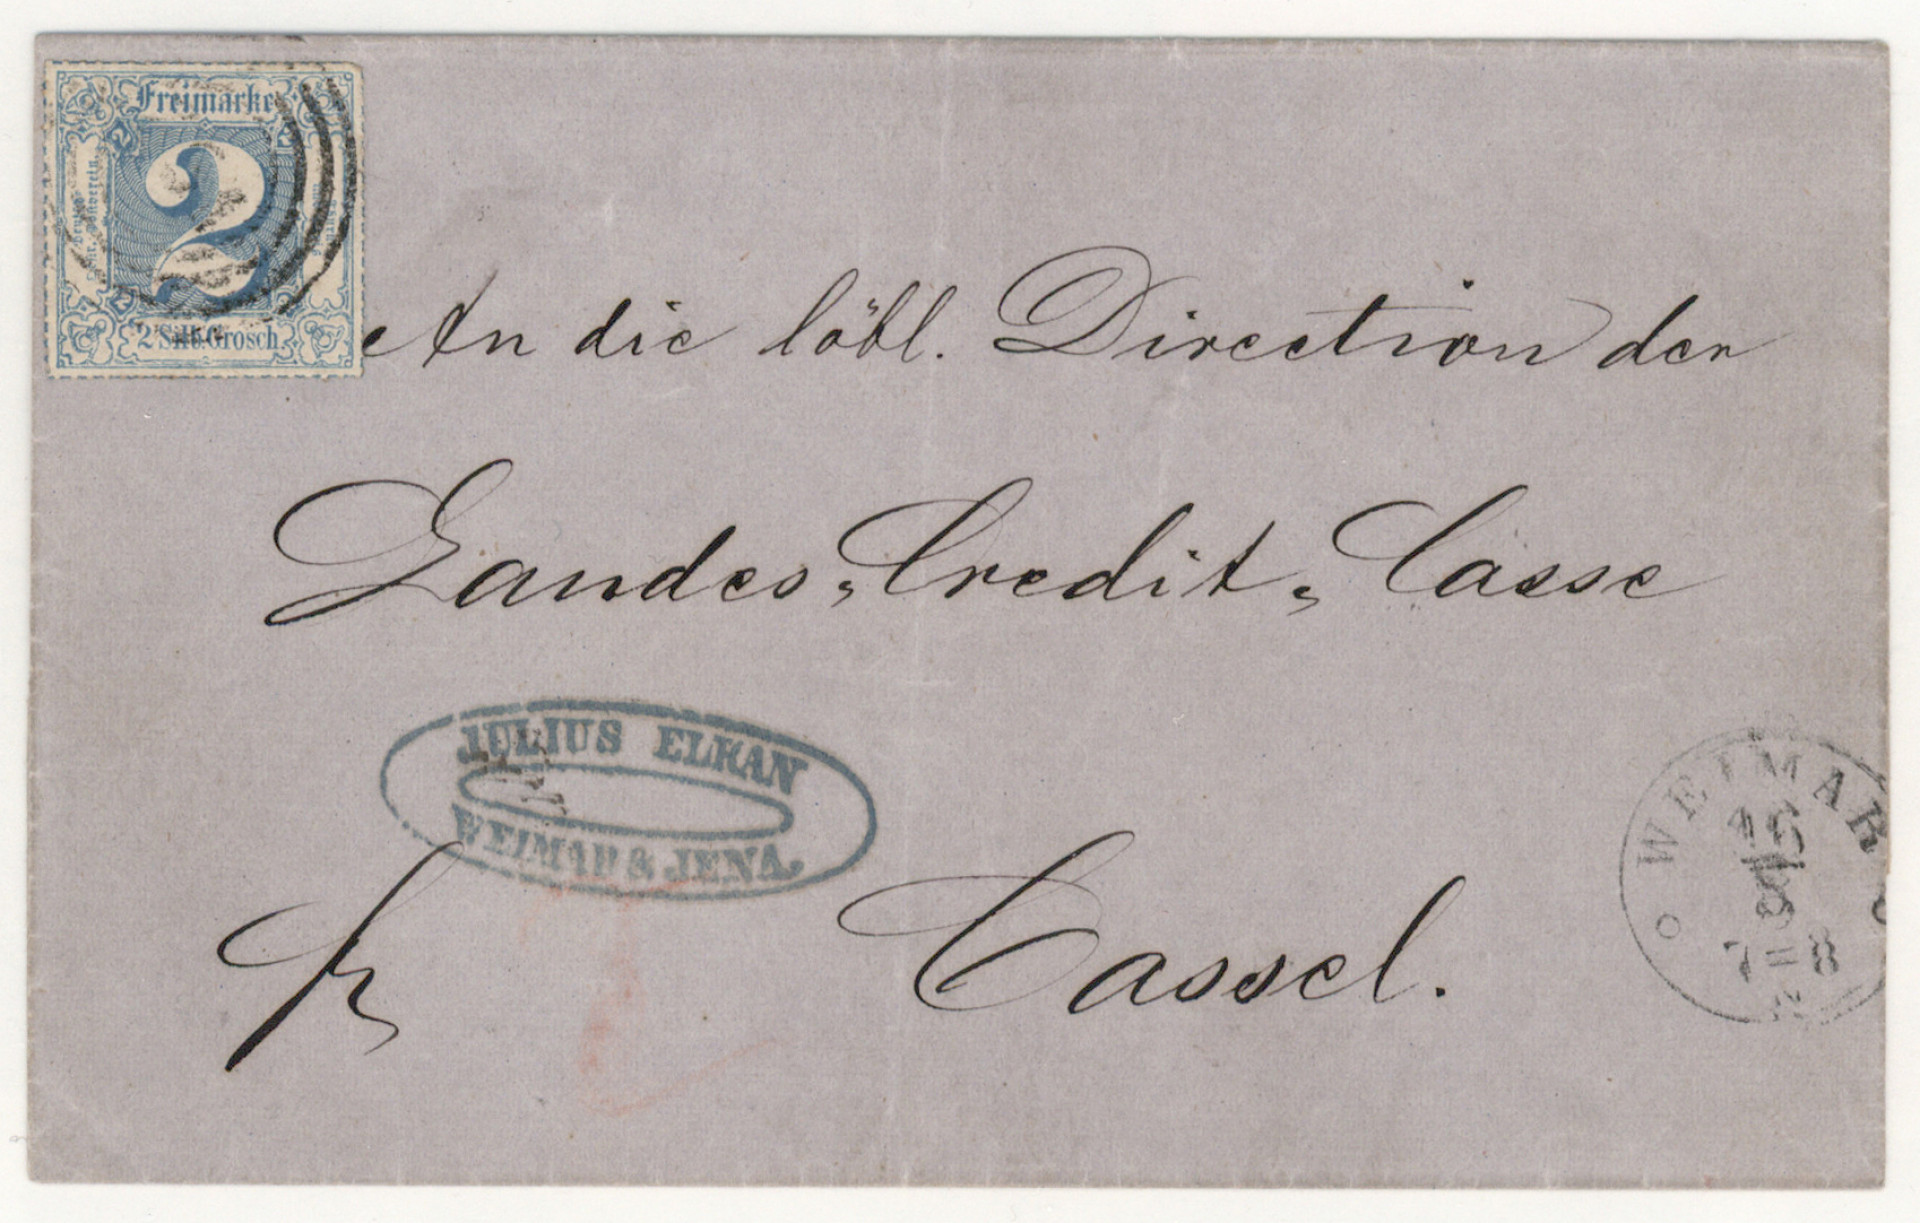 Freimarke
2
2 Silb.Grosch.
An die löbl. Direction der
Landes-Credit-Casse
JULIUS ELKAN
WEIMAR & JENA.
Cassel.
WEIMAR
16
8
7-8